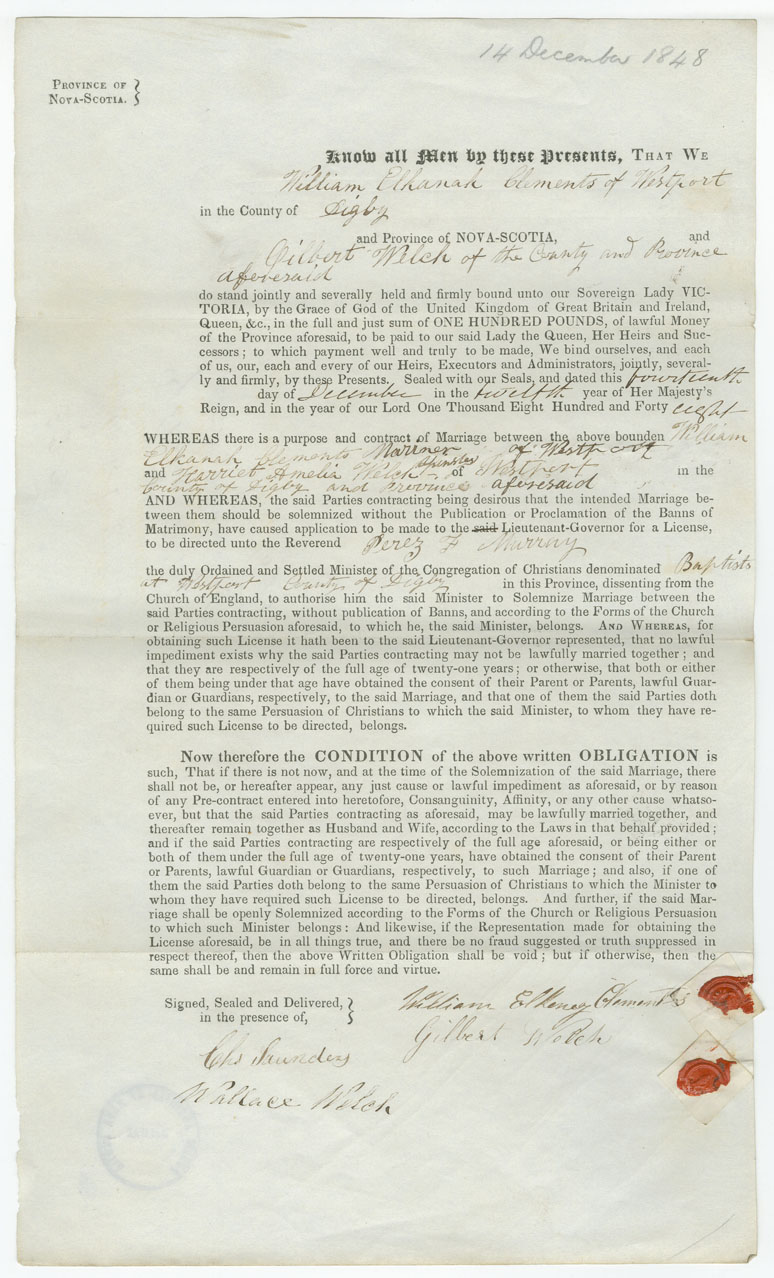 14 December 1848
PROVINCE OF
NOVA-SCOTIA.
Know all Men by these Presents, THAT WE
William Elkanah Clements of Westport
in the County of Digby
and Province of NOVA-SCOTIA, and
Gilbert Welch of the County and Province
aforesaid
do stand jointly and severally held and firmly bound unto our Sovereign Lady VIC-
TORIA, by the Grace of God of the United Kingdom of Great Britain and Ireland,
Queen, &c., in the full and just sum of ONE HUNDRED POUNDS, of lawful Money
of the Province aforesaid, to be paid to our said Lady the Queen, Her Heirs and Suc-
cessors; to which payment well and truly to be made, We bind ourselves, and each
of us, our, each and every of our Heirs, Executors and Administrators, jointly, several-
ly and firmly, by these Presents. Sealed with our Seals, and dated this fourteenth
day of December in the twelfth year of Her Majesty's
Reign, and in the year of our Lord One Thousand Eight Hundred and Forty eight
WHEREAS there is a purpose and contract of Marriage between the above bounden William
Elkanah Clements Mariner of Westport
and Harriet Amelia Welch Spinster of Westport in the
County of Digby and Province aforesaid
AND WHEREAS, the said Parties contracting being desirous that the intended Marriage be-
tween them should be solemnized without the Publication or Proclamation of the Banns of
Matrimony, have caused application to be made to the said Lieutenant-Governor for a License,
to be directed unto the Reverend Perez F Murray
the duly Ordained and Settled Minister of the Congregation of Christians denominated Baptists
at Westport County of Digby in this Province, dissenting from the
Church of England, to authorise him the said Minister to Solemnize Marriage between the
said Parties contracting, without publication of Banns, and according to the Forms of the Church
or Religious Persuasion aforesaid, to which he, the said Minister, belongs. AND WHEREAS, for
obtaining such License it hath been to the said Lieutenant-Governor represented, that no lawful
impediment exists why the said Parties contracting may not be lawfully married together; and
that they are respectively of the full age of twenty-one years; or otherwise, that both or either
of them being under that age have obtained the consent of their Parent or Parents, lawful Guar-
dian or Guardians, respectively, to the said Marriage, and that one of them the said Parties doth
belong to the same Persuasion of Christians to which the said Minister, to whom they have re-
quired such License to be directed, belongs.
Now therefore the CONDITION of the above written OBLIGATION is
such, That if there is not now, and at the time of the Solemnization of the said Marriage, there
shall not be, or hereafter appear, any just cause or lawful impediment as aforesaid, or by reason
of any Pre-contract entered into heretofore, Consanguinity, Affinity, or any other cause whatso-
ever, but that the said Parties contracting as aforesaid, may be lawfully married together, and
thereafter remain together as Husband and Wife, according to the Laws in that behalf provided;
and if the said Parties contracting are respectively of the full age aforesaid, or being either or
both of them under the full age of twenty-one years, have obtained the consent of their Parent
or Parents, lawful Guardian or Guardians, respectively, to such Marriage; and also, if one of
them the said Parties doth belong to the same Persuasion of Christians to which the Minister to
whom they have required such License to be directed, belongs. And further, if the said Mar-
riage shall be openly Solemnized according to the Forms of the Church or Religious Persuasion
to which such Minister belongs: And likewise, if the Representation made for obtaining the
License aforesaid, be in all things true, and there be no fraud suggested or truth suppressed in
respect thereof, then the above Written Obligation shall be void; but if otherwise, then the
same shall be and remain in full force and virtue.
Signed, Sealed and Delivered,
in the presence of,
William Elkeney Clements
Gilbert Welch
Chs Saunders
Wallace Welch